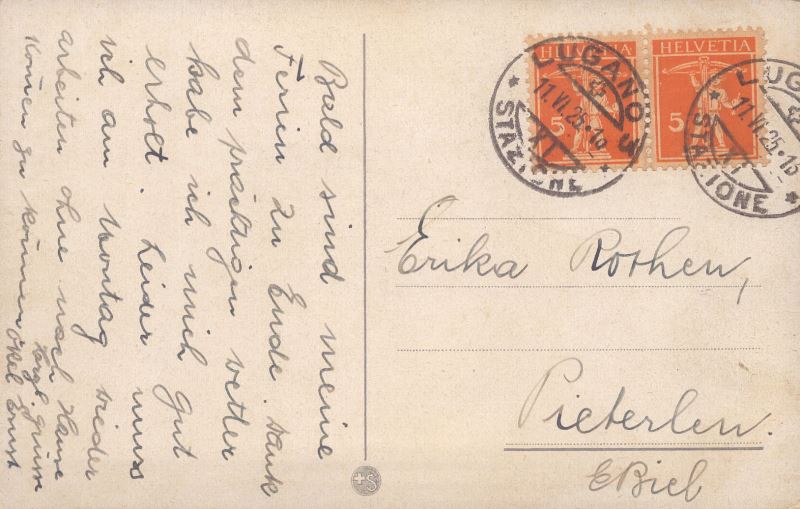 Bald sind meine
Ferien zu Ende. Dank
dem prächtigen Wetter
habe ich mich gut
erholt. Leider muss
ich am Montag wieder
arbeiten ohne nach Hause
kommen zu können
Herzl. Grüsse
Onkel Ernst
HELVETIA
5
HELVETIA
5
LUGANO 3
11.VI.25.16
STAZIONE
LUGANO
11.VI.25.16
STAZIONE
Erika Rothen,
Pieterlen.
b/Biel